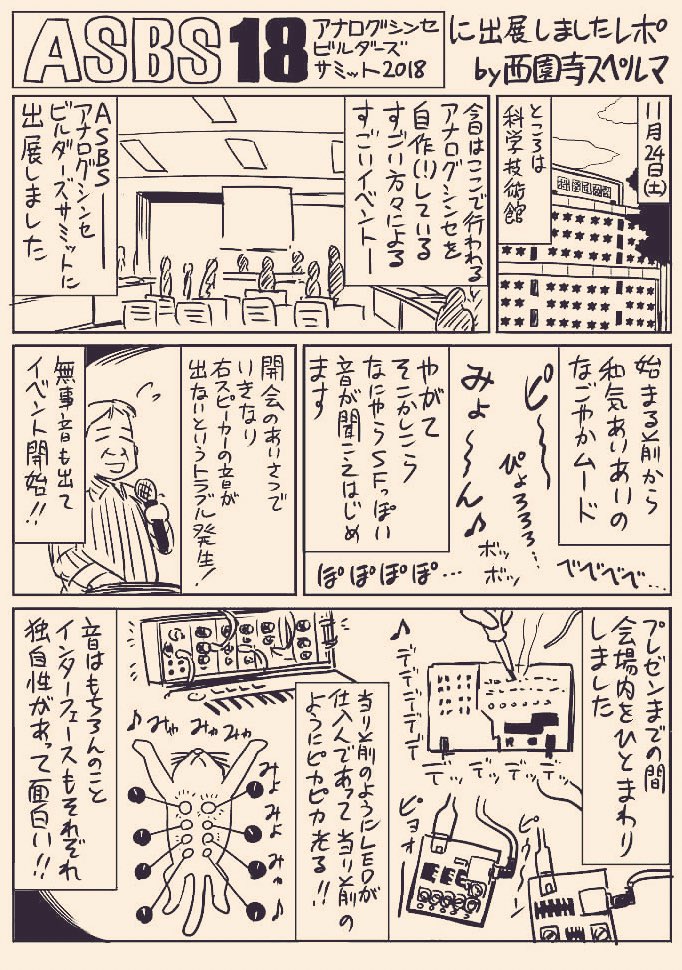 ASBS18
アナログシンセ
ビルダーズ
サミット2018
に出展しましたレポ
by西園寺スペルマ
11月24日(土)
ところは
科学技術館
今日はここで行われる
アナログシンセを
自作(!)している
すごい方々による
すごいイベント―
ASBS――
アナログシンセ
ビルダーズサミットに
出展しました
始まる前から
和気あいあいの
なごやかムード
ピ〜〜
ぴょろろろ…
みょ〜〜ん♪
ボッ
ボッ
べべべべ…
ぽぽぽぽ…
やがて
そこかしこら
なにやらSFっぽい
音が聞こえはじめ
ます
開会のあいさつで
いきなり
右スピーカーの音が
出ないというトラブル発生!
無事音も出て
イベント開始!!
プレゼンまでの間
会場内をひとまわり
しました
♪デデデデデ
デッデッデッデッ
ピョオ
ピゥーン
当り前のようにLEDが
仕込んであって当り前の
ようにピカピカ光る!!
♪みゃみゃみゃ
みょ
みょ
みゅ
♪
音はもちろんのこと
インターフェースもそれぞれ
独自性があって面白い!!